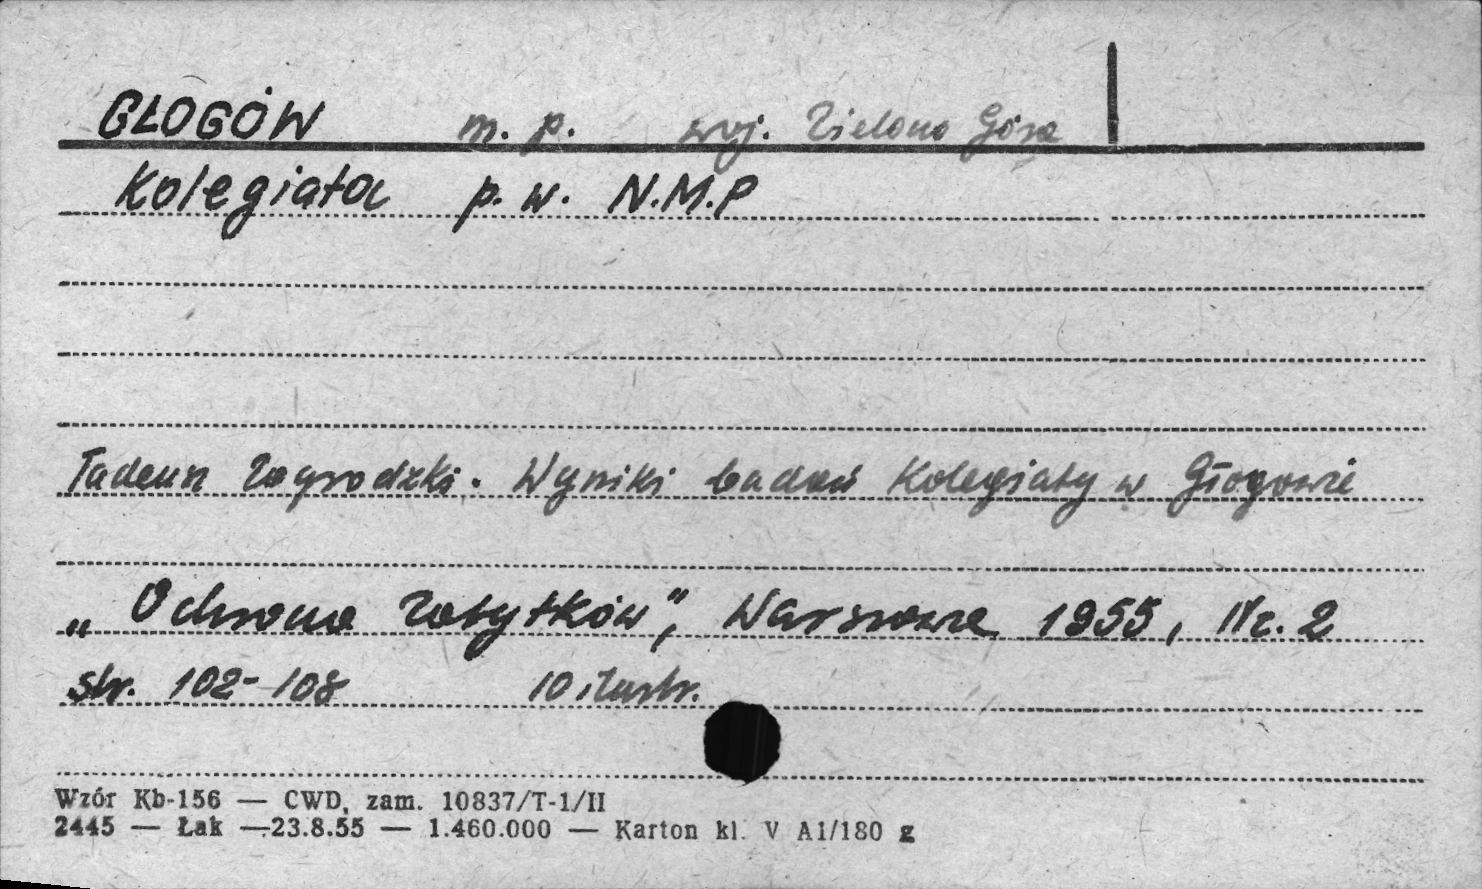 GŁOGÓW m. p. woj. Zielona Góra
Kolegiata p. w. N.M.P
Tadeusz Zagrodzki. Wyniki badań Kolegiaty w Głogowie
„Ochrona Zabytków", Warszawa 1955, Nr. 2
str. 102-108 10 ilustr.
Wzór Kb-156 — CWD, zam. 10837/T-1/II
2445 — Łak —23.8.55 — 1.460.000 — Karton kl. V A1/180 g